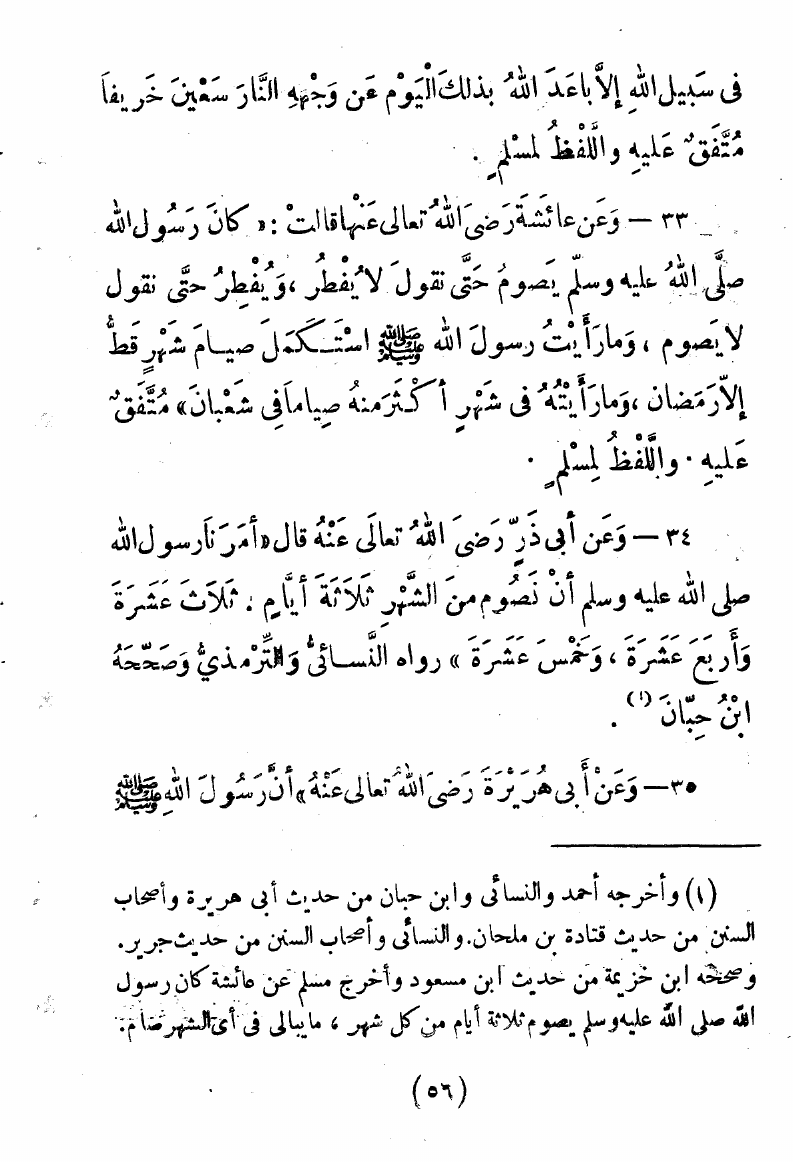 فى سَبيل اللهِ إلاَّ باعَدَ اللهُ بذلكَ الْيَوْم عَن وَجْههِ النَّارَ سَعْينَ خَريفاَ
مُتَّفَقٌ عَليهِ واللَّفْظُ لمسْلمٍ .
٣٣ — وَعَن عائشَةَ رَضىَ اللهُ تعالى عَنْها قالتْ : « كانَ رَسُول الله
صلَّى اللهُ عليه وسلّم يَصومُ حَتَّى نقولَ لا يُفْطرُ ، وَيُفْطِرُ حتَّى نقول
لا يَصوم ، وَمارَأَيْتُ رسولَ الله ﷺ اسْتَـكمَلَ صيـامَ شَهْرٍ قَطُّ
إلاّ رَمَضان ، وَمارَأَيْتُهُ فى شَهْرٍ أكْـثَرَ منهُ صِياماَ فى شَعْبانَ » مُتَّفَقٌ
عَليهِ . واللَّفْظُ لِمسْلمٍ .
٣٤ — وَعَن أبى ذَرٍّ رَضىَ اللهُ تعالَى عَنْهُ قال « أمَرَ نَا رسول الله
صلى الله عليه وسلم أنْ نَصُوم منَ الشَّهْرِ ثَلاَثَةَ أيَّامٍ : ثلاَثَ عَشَرَةَ
وَأَربَعَ عَشَرَةَ ، وَخَمْسَ عَشَرَةَ » رواه النَّسـائىُّ وَالتِّرْمذىُّ وَصَحّحَهُ
ابْنُ حِبّانَ (١) .
٣٥ — وَعَنْ أَبى هُرَيْرَةَ رَضىَ اللهُ تعالى عَنْهُ » أنَّ رَسُولَ اللهِ ﷺ
(١) وأخرجه أحمد والنسائى وابن حبان من حديث أبى هريرة وأصحاب
السنن من حديث قتادة بن ملحان. والنسائى وأصحاب السنن من حديث جرير.
وصححه ابن خزيمة من حديث ابن مسعود وأخرج مسلم عن عائشة كان رسول
الله صلى الله عليه وسلم يصوم ثلاثة أيام من كل شهر ، مايبالى فى أى الشهر صام .
(٥٦)